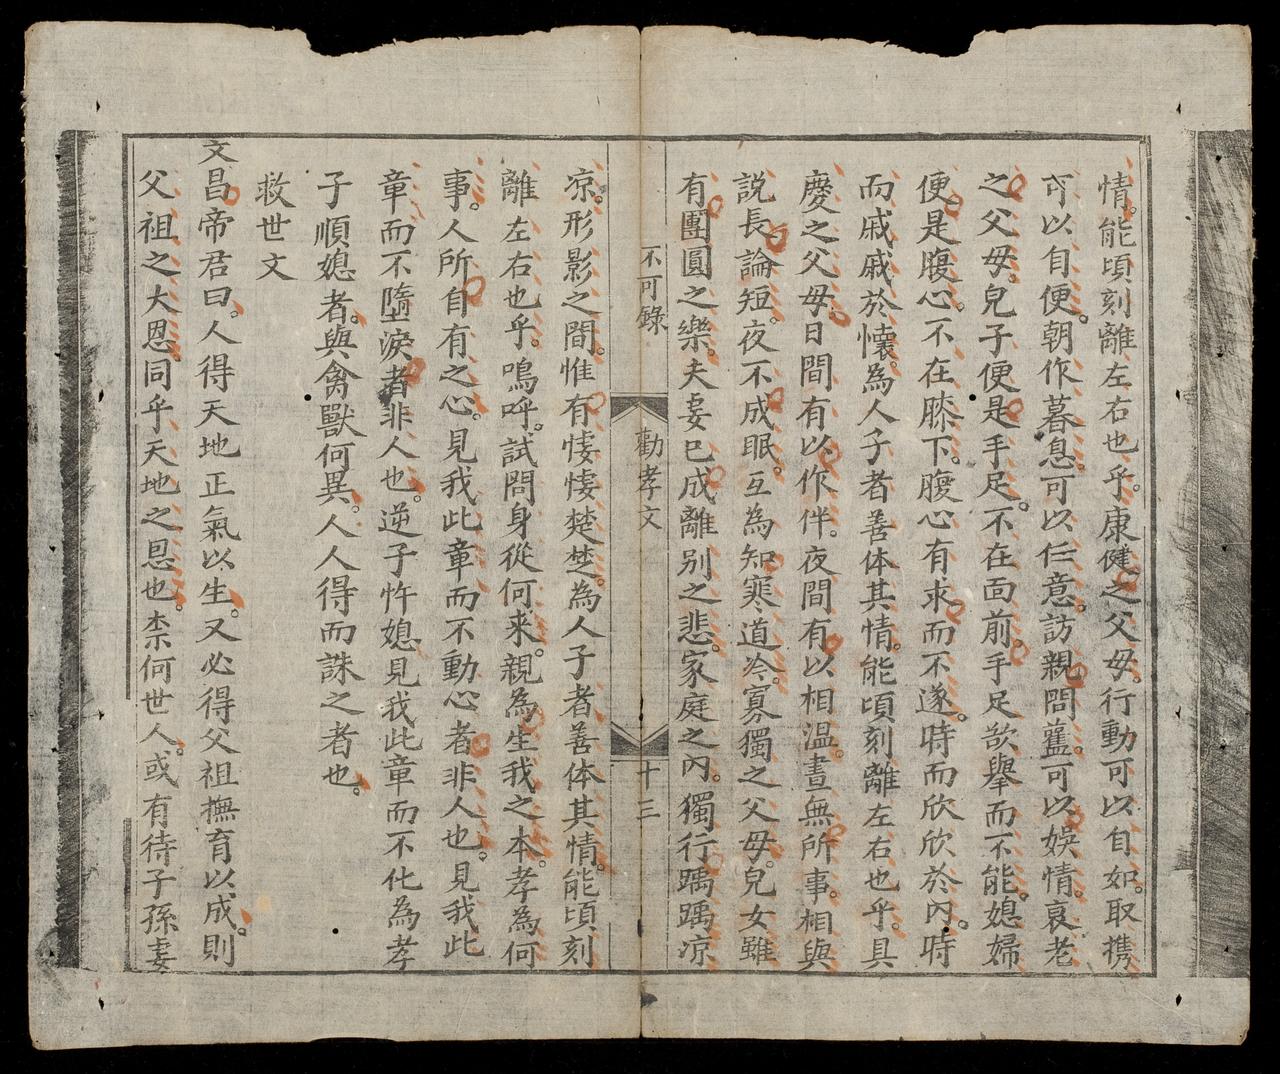 情。能頃刻離左右也乎。康健之父母。行動可以自如。取携
可以自便。朝作暮息。可以任意。訪親問舊。可以娛情。哀老
之父母。皃子便是手足。不在面前。手足欲舉而不能。媳婦
便是腹心。不在膝下。腹心有求而不遂。時而欣欣於內。時
而戚戚於懷。為人子者善体其情。能頃刻離左右也乎。具
慶之父母。日間有以作伴。夜間有以相溫。晝無所事。相與
説長論短。夜不成眠。互為知寒道冷。寡獨之父母。皃女雖
有團圓之樂。夫妻已成離别之悲。家庭之內。獨行踽踽凉
不可錄
勸孝文
十三
凉。形影之間。惟有悽悽楚楚。為人子者善体其情。能頃刻
離左右也乎。嗚呼。試問身從何来。親為生我之本。孝為何
事。人所自有之心。見我此章而不動心者非人也。見我此
章而不墮淚者非人也。逆子忤媳見我此章而不化為孝
子順媳者。與禽獸何異。人人得而誅之者也。
救世文
文昌帝君曰。人得天地正氣以生。又必得父祖撫育以成。則
父祖之大恩同乎天地之恩也。柰何世人。或有待子孫妻